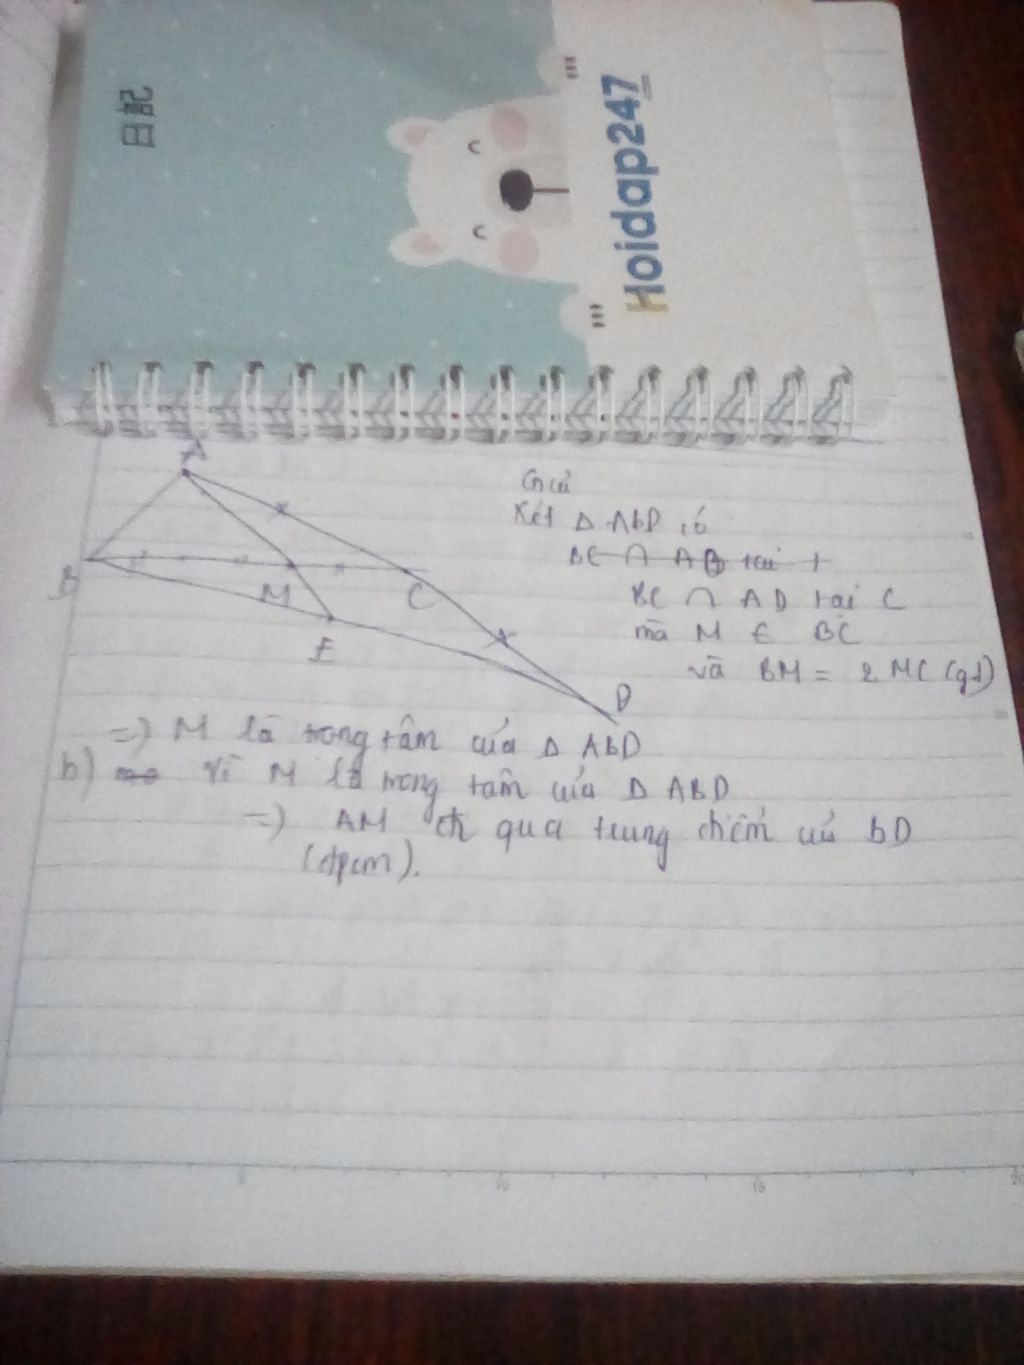 日記
Hoidap247
A
B
M
C
E
D
Giải
Xét Δ ABD có
BC ∩ AD tại C
mà M ∈ BC
và BM = 2 MC (gt)
=) M là trong tâm của Δ ABD
b) vì M là trong tâm của Δ ABD
=) AM đi qua trung điểm của BD
(đpcm).